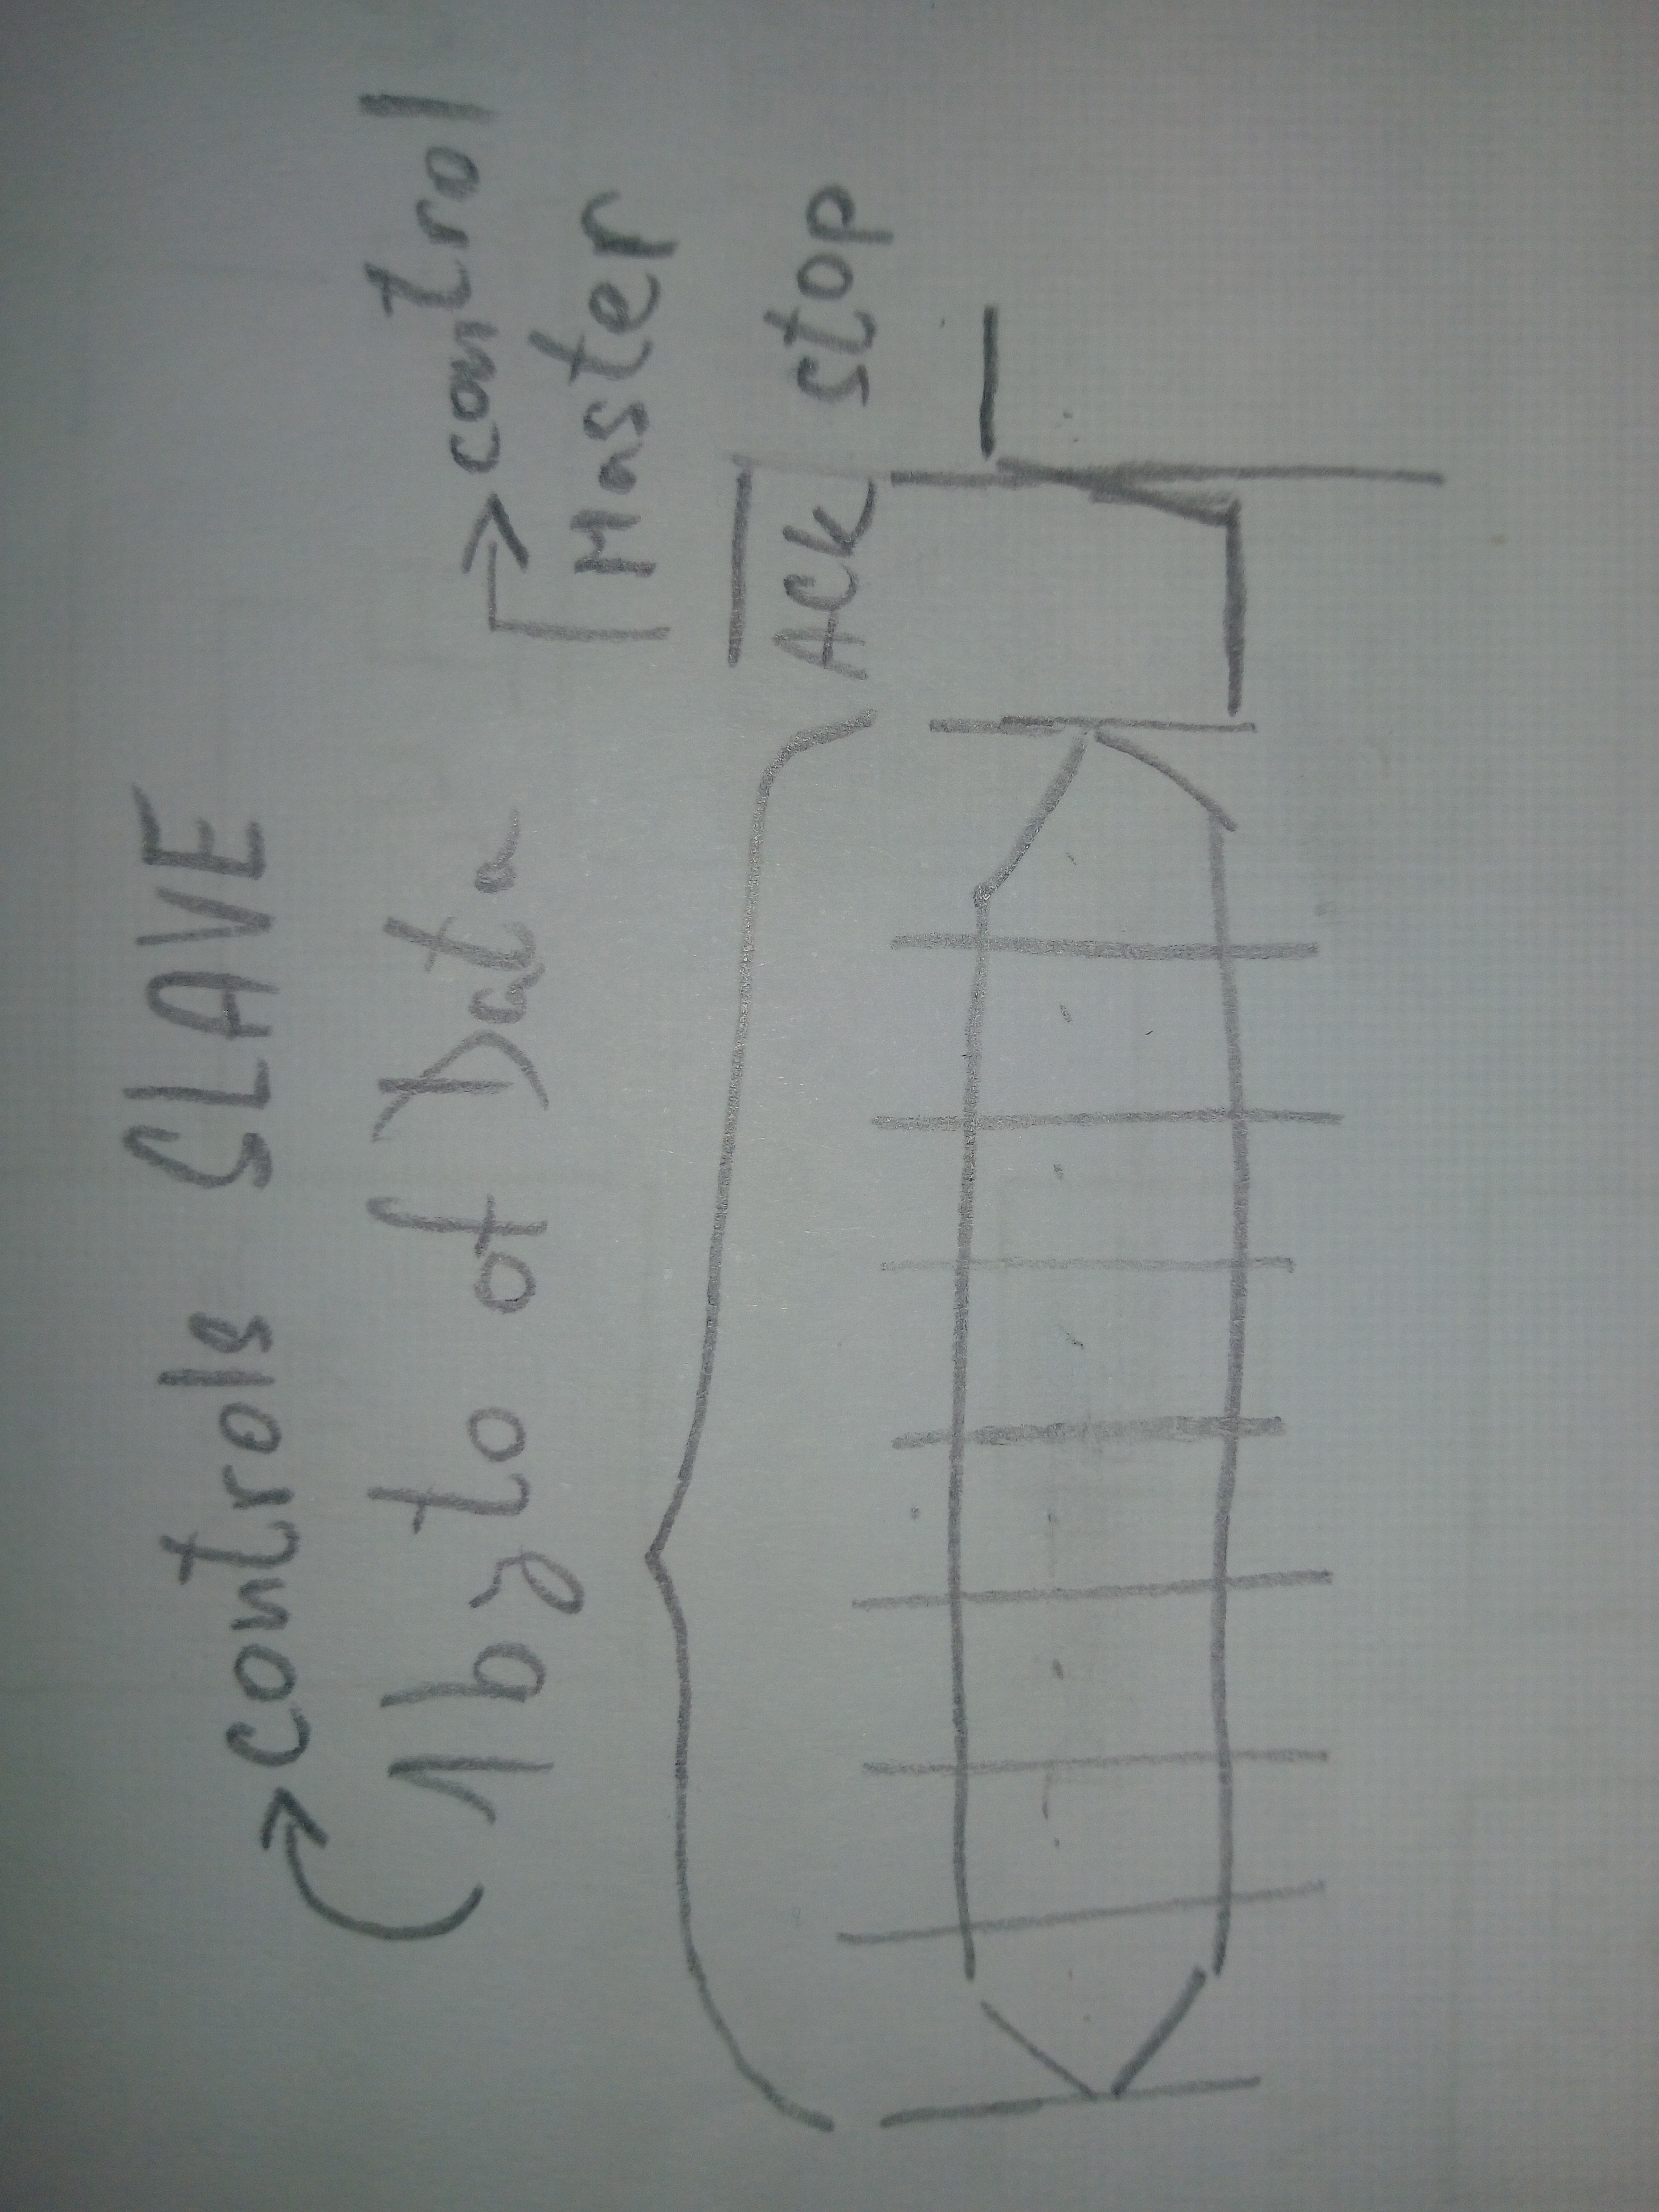 controls SLAVE
1 byto of Data
control
Master
ACk stop